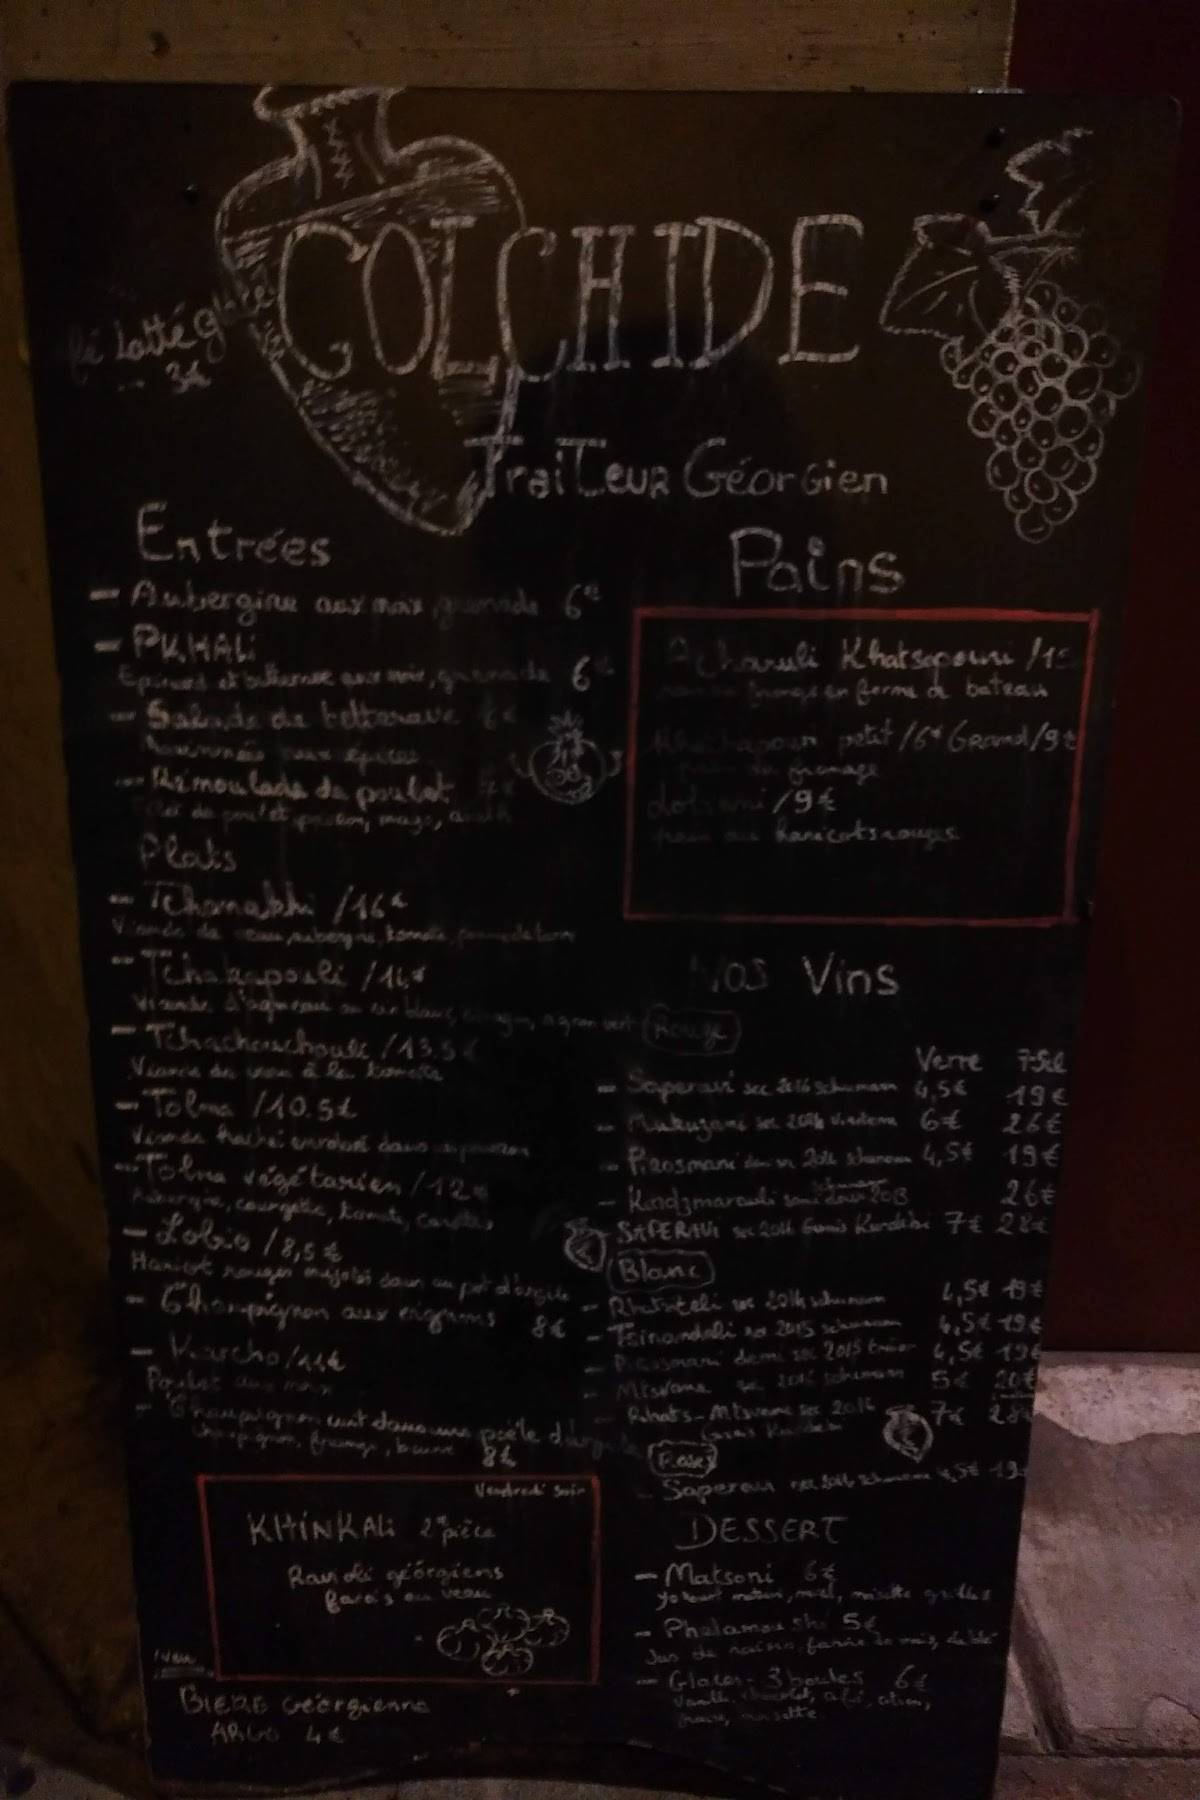 COLCHIDE
Latté glacé
3€
Traiteur Géorgien
Entrées
- Aubergine aux noix, grenade 6€
- PKHALi
Epinard et betterave aux noix, grenade 6€
- Salade de betterave 6€
aux épices
- Rémoulade de poulet
mayo, aneth
Plats
- Tchanakhi /16€
Viande de veau, aubergine, tomate, pomme de terre
- Tchakapouli /16€
Viande d'agneau au vin blanc, estragon, oignon vert
- Tchachouchouli /13.5€
Viande de veau à la tomate
- Tolma /10.5€
Viande haché enroulé dans
- Tolma végétarien /12€
Aubergine, courgette, tomate, carottes
- Lobio /8,5€
Haricot rouges mijotés dans un pot d'argile
- Champignon aux 8€
- Kharcho /11€
Poulet aux noix
- Champignon cuit dans une poêle d'argile
champignon, fromage, beurre 8€
Vendredi soir
KHiNKALi 2€ pièce
Ravioli géorgiens
farcis au veau
BIERE Géorgienne
ARGO 4€
Pains
Acharuli Khatsapouri /
fromage en forme de bateau
Khatchapouri petit /6€ Grand /9€
pain au fromage
Lobiani /9€
pain aux haricots rouges
Nos Vins
Rouge
Verre 75cl
- Saperavi sec 2016 schumann 4,5€ 19€
- Mukuzani sec 6€ 26€
- Pirosmani demi sec schumann 4,5€ 19€
- Kindzmarauli schumann 26€
- SAPERAVI sec 7€ 28€
Blanc
- Rkatsiteli sec 2014 schumann 4,5€ 19€
- Tsinandali sec 2015 schumann 4,5€ 19€
- Pirosmani demi sec 2015 4,5€ 19€
- Mtsvane sec schumann 5€ 20€
- Rkats-Mtsvane sec 2016 7€ 28€
Rosé
- Saperavi sec 2016 schumann 4,5€ 19€
DESSERT
- Matsoni 6€
yaourt maison, miel, noisette grillés
- Phelamoushi 5€
Jus de raisin, farine de maïs, de blé
- Glaces - 3 boules 6€
Vanille, chocolat, café, citron,
fraise, noisette.